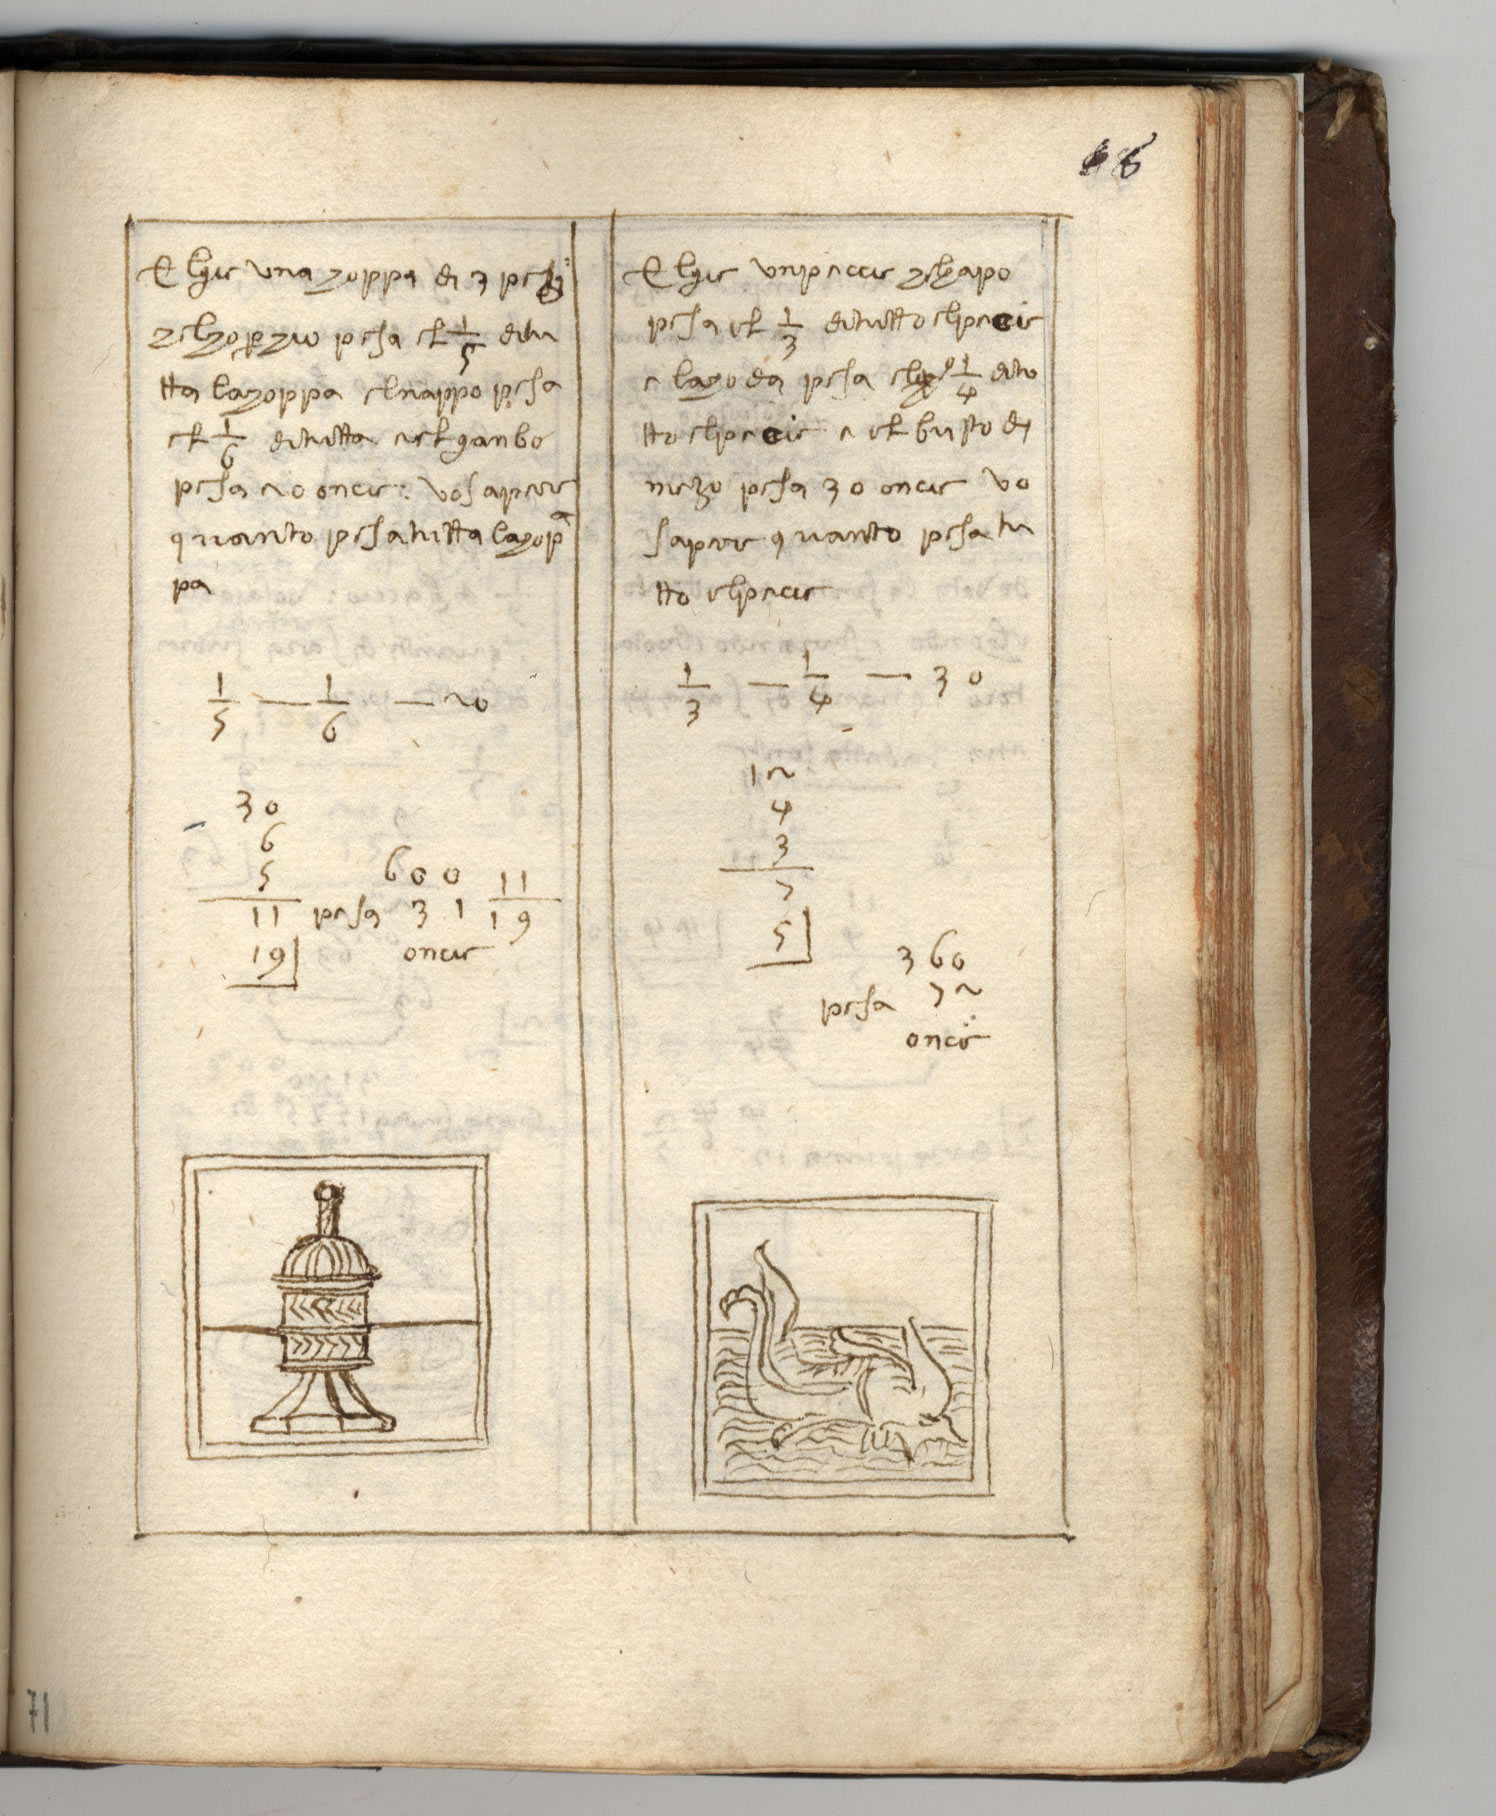 68
E lgie una zoppa di 3 pezi
e lchoperzio pesa el 1/5 ditu
tta lazoppa elnappo pesa
el 1/6 ditutta eelganbo
pesa 20 oncie: vosapere
quanto pesatutta lazopa
pa
1/5 — 1/6 — 20
30
6
5
600 11
11 pesa 31 19
19 oncie
E lgie unpescie elchapo
pesa el 1/3 ditutto elpescie
e lachoda pesa el 1/4 ditu
tto elpescie e el busto di
mezo pesa 30 oncie vo
sapere quanto pesa tu
tto elpescie
1/3 — 1/4 — 30
12
4
3
7
5
360
pesa 72
oncie
71